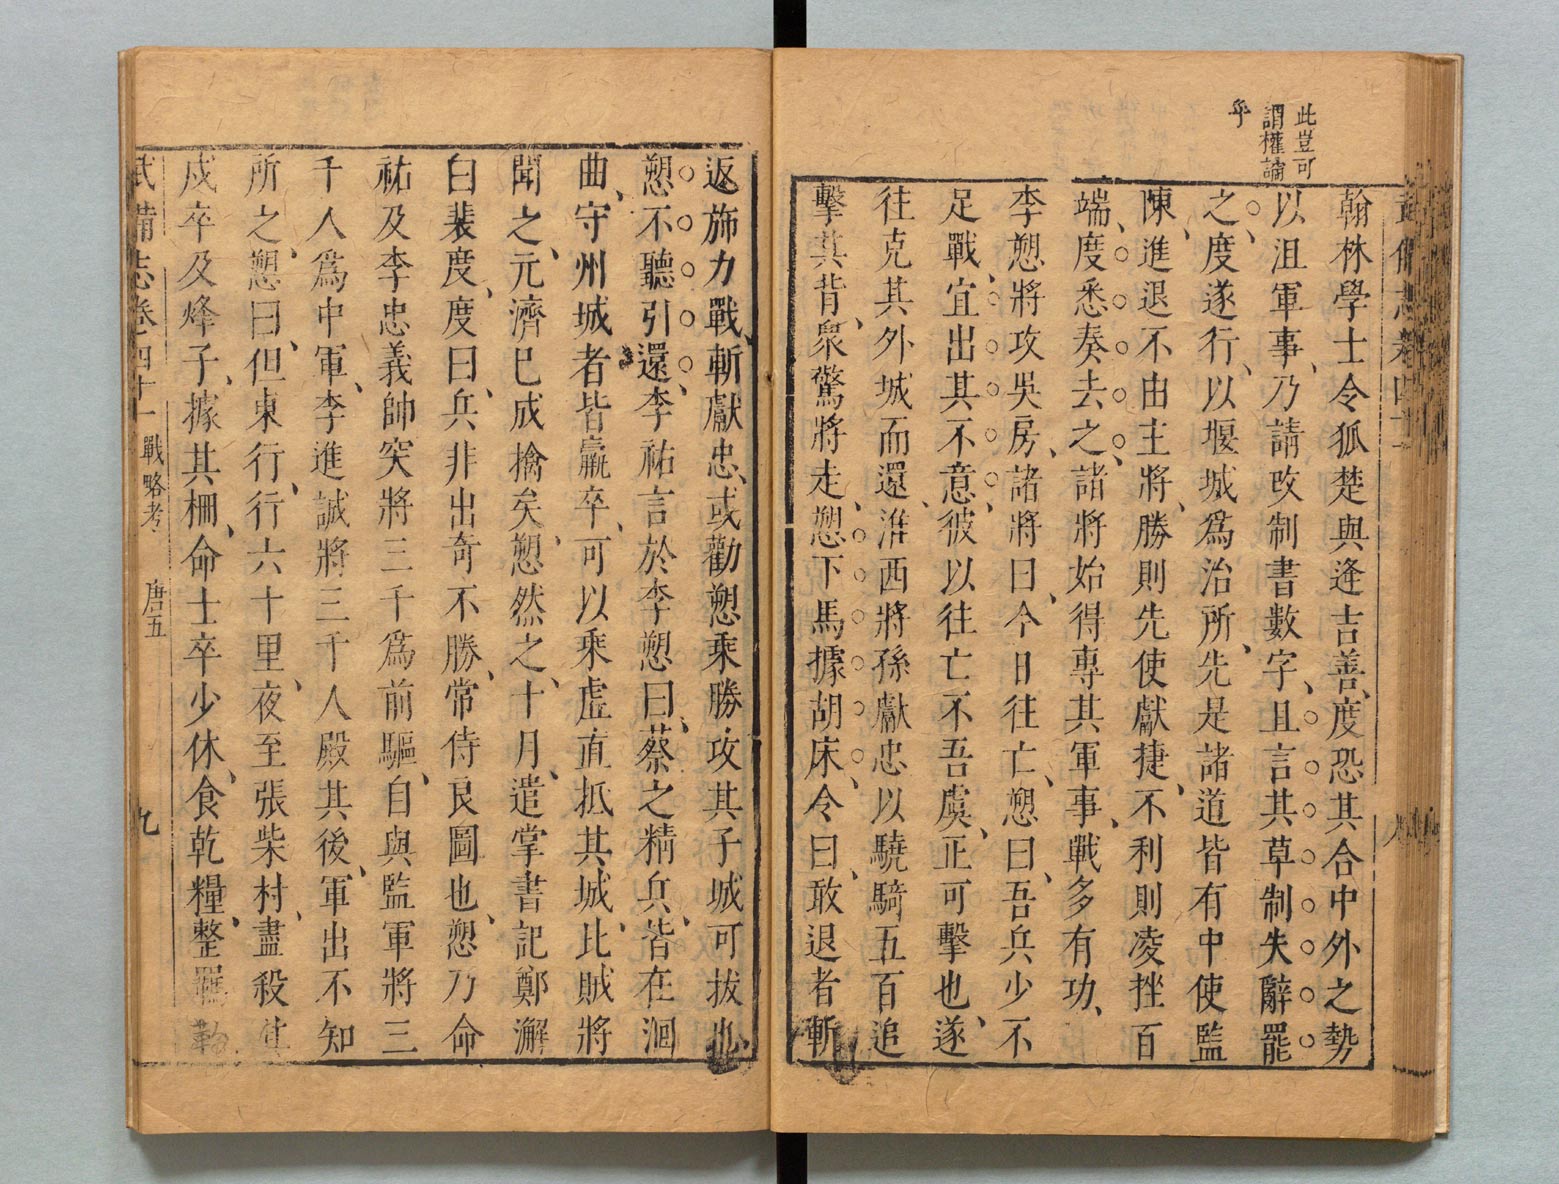 此豈可
謂權譎
乎
翰林學士令狐楚與逄吉善度恐其合中外之勢
以沮軍事乃請改制書數字且言其草制失辭罷
之度遂行以堰城爲治所先是諸道皆有中使監
陳進退不由主將勝則先使獻捷不利則凌挫百
端度悉奏去之諸將始得專其軍事戰多有功
李愬將攻吳房諸將曰今日往亡愬曰吾兵少不
足戰宜出其不意彼以往亡不吾虞正可擊也遂
往克其外城而還淮西將孫獻忠以驍騎五百追
擊其背衆驚將走愬下馬據胡床令曰敢退者斬
返施力戰斬獻忠或勸愬乘勝攻其子城可拔也
愬不聽引還李祐言於李愬曰蔡之精兵皆在洄
曲守州城者皆羸卒可以乘虛直抵其城比賊將
聞之元濟已成擒矣愬然之十月遣掌書記鄭澥
白裴度度曰兵非出奇不勝常侍良圖也愬乃命
祐及李忠義帥突將三千爲前驅自與監軍將三
千人爲中軍李進誠將三千人殿其後軍出不知
所之愬曰但東行行六十里夜至張柴村盡殺其
戍卒及烽子據其柵命士卒少休食乾糧整羈勒
武備志卷四十一 戰略考 唐五 九